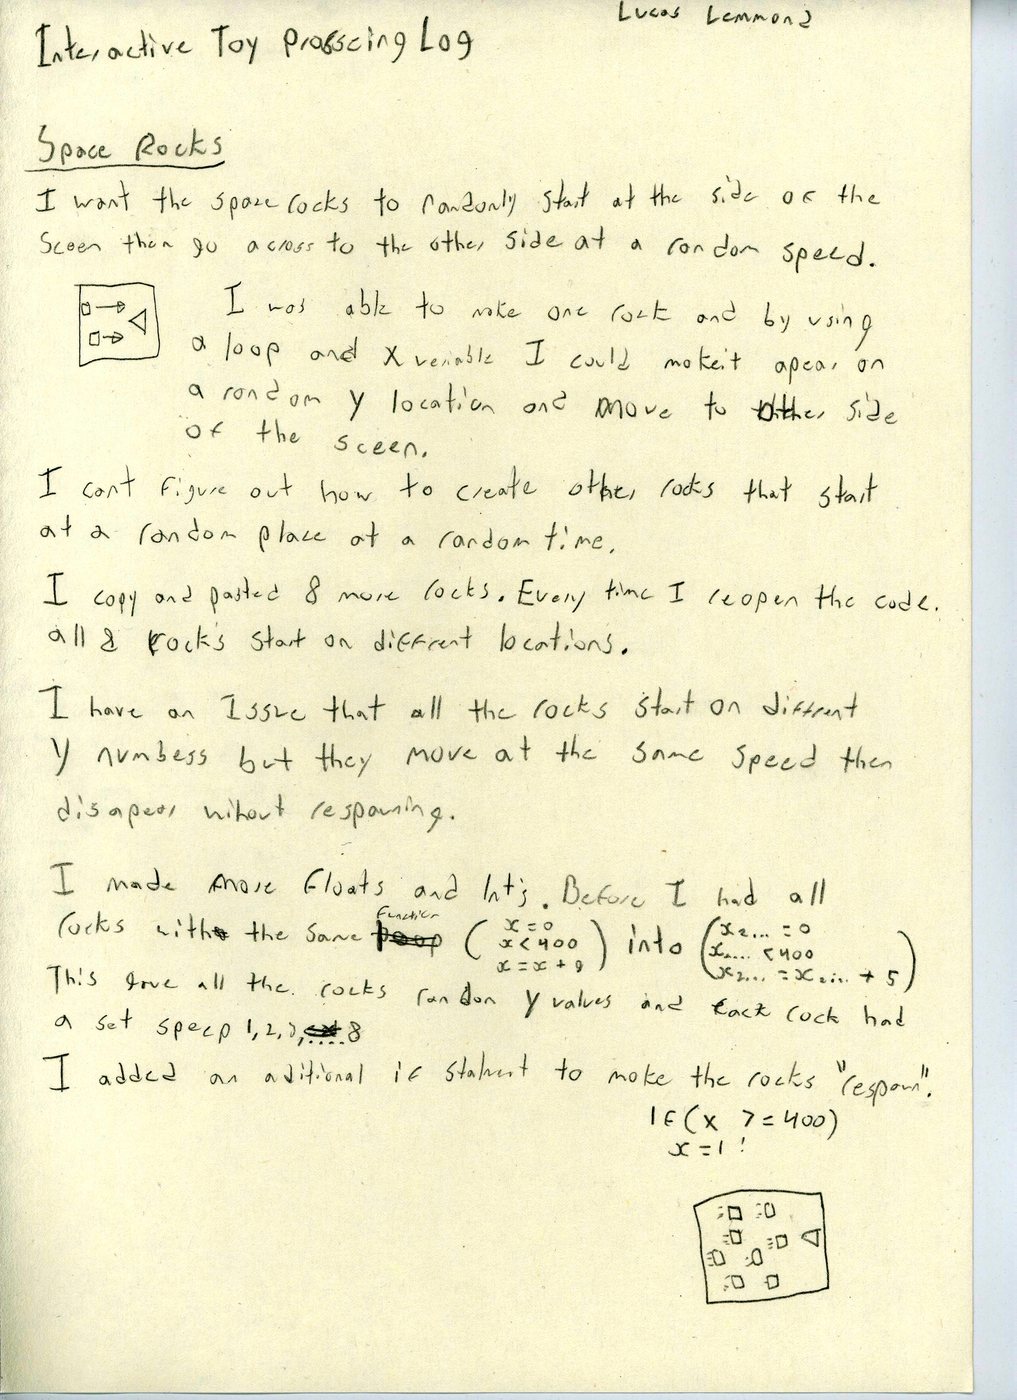 Lucas Lemmond
Interactive Toy Prosscing Log
Space Rocks
I want the space rocks to randomly start at the side of the
Sceen then go across to the other side at a random speed.
I was able to make one rock and by using
a loop and X veriable I could make it apear on
a random y location and move to other side
of the sceen.
I cant figure out how to create other rocks that start
at a random place at a random time.
I copy and pasted 8 more rocks. Every time I reopen the code.
all 8 rocks start on different locations.
I have an Issue that all the rocks start on diffrent
y numbess but they move at the same speed then
disapear wihout respawning.
I made more floats and Int's. Before I had all
function
rocks with the same ( x=0 ) into ( x2... =0
x<400 x.... <400
x=x+9 x2... =x2... + 5 )
This gave all the rocks random y values and each rock had
a set speep 1,2,3,....8
I added an aditional if statment to make the rocks "respawn".
If(x >=400)
x=1